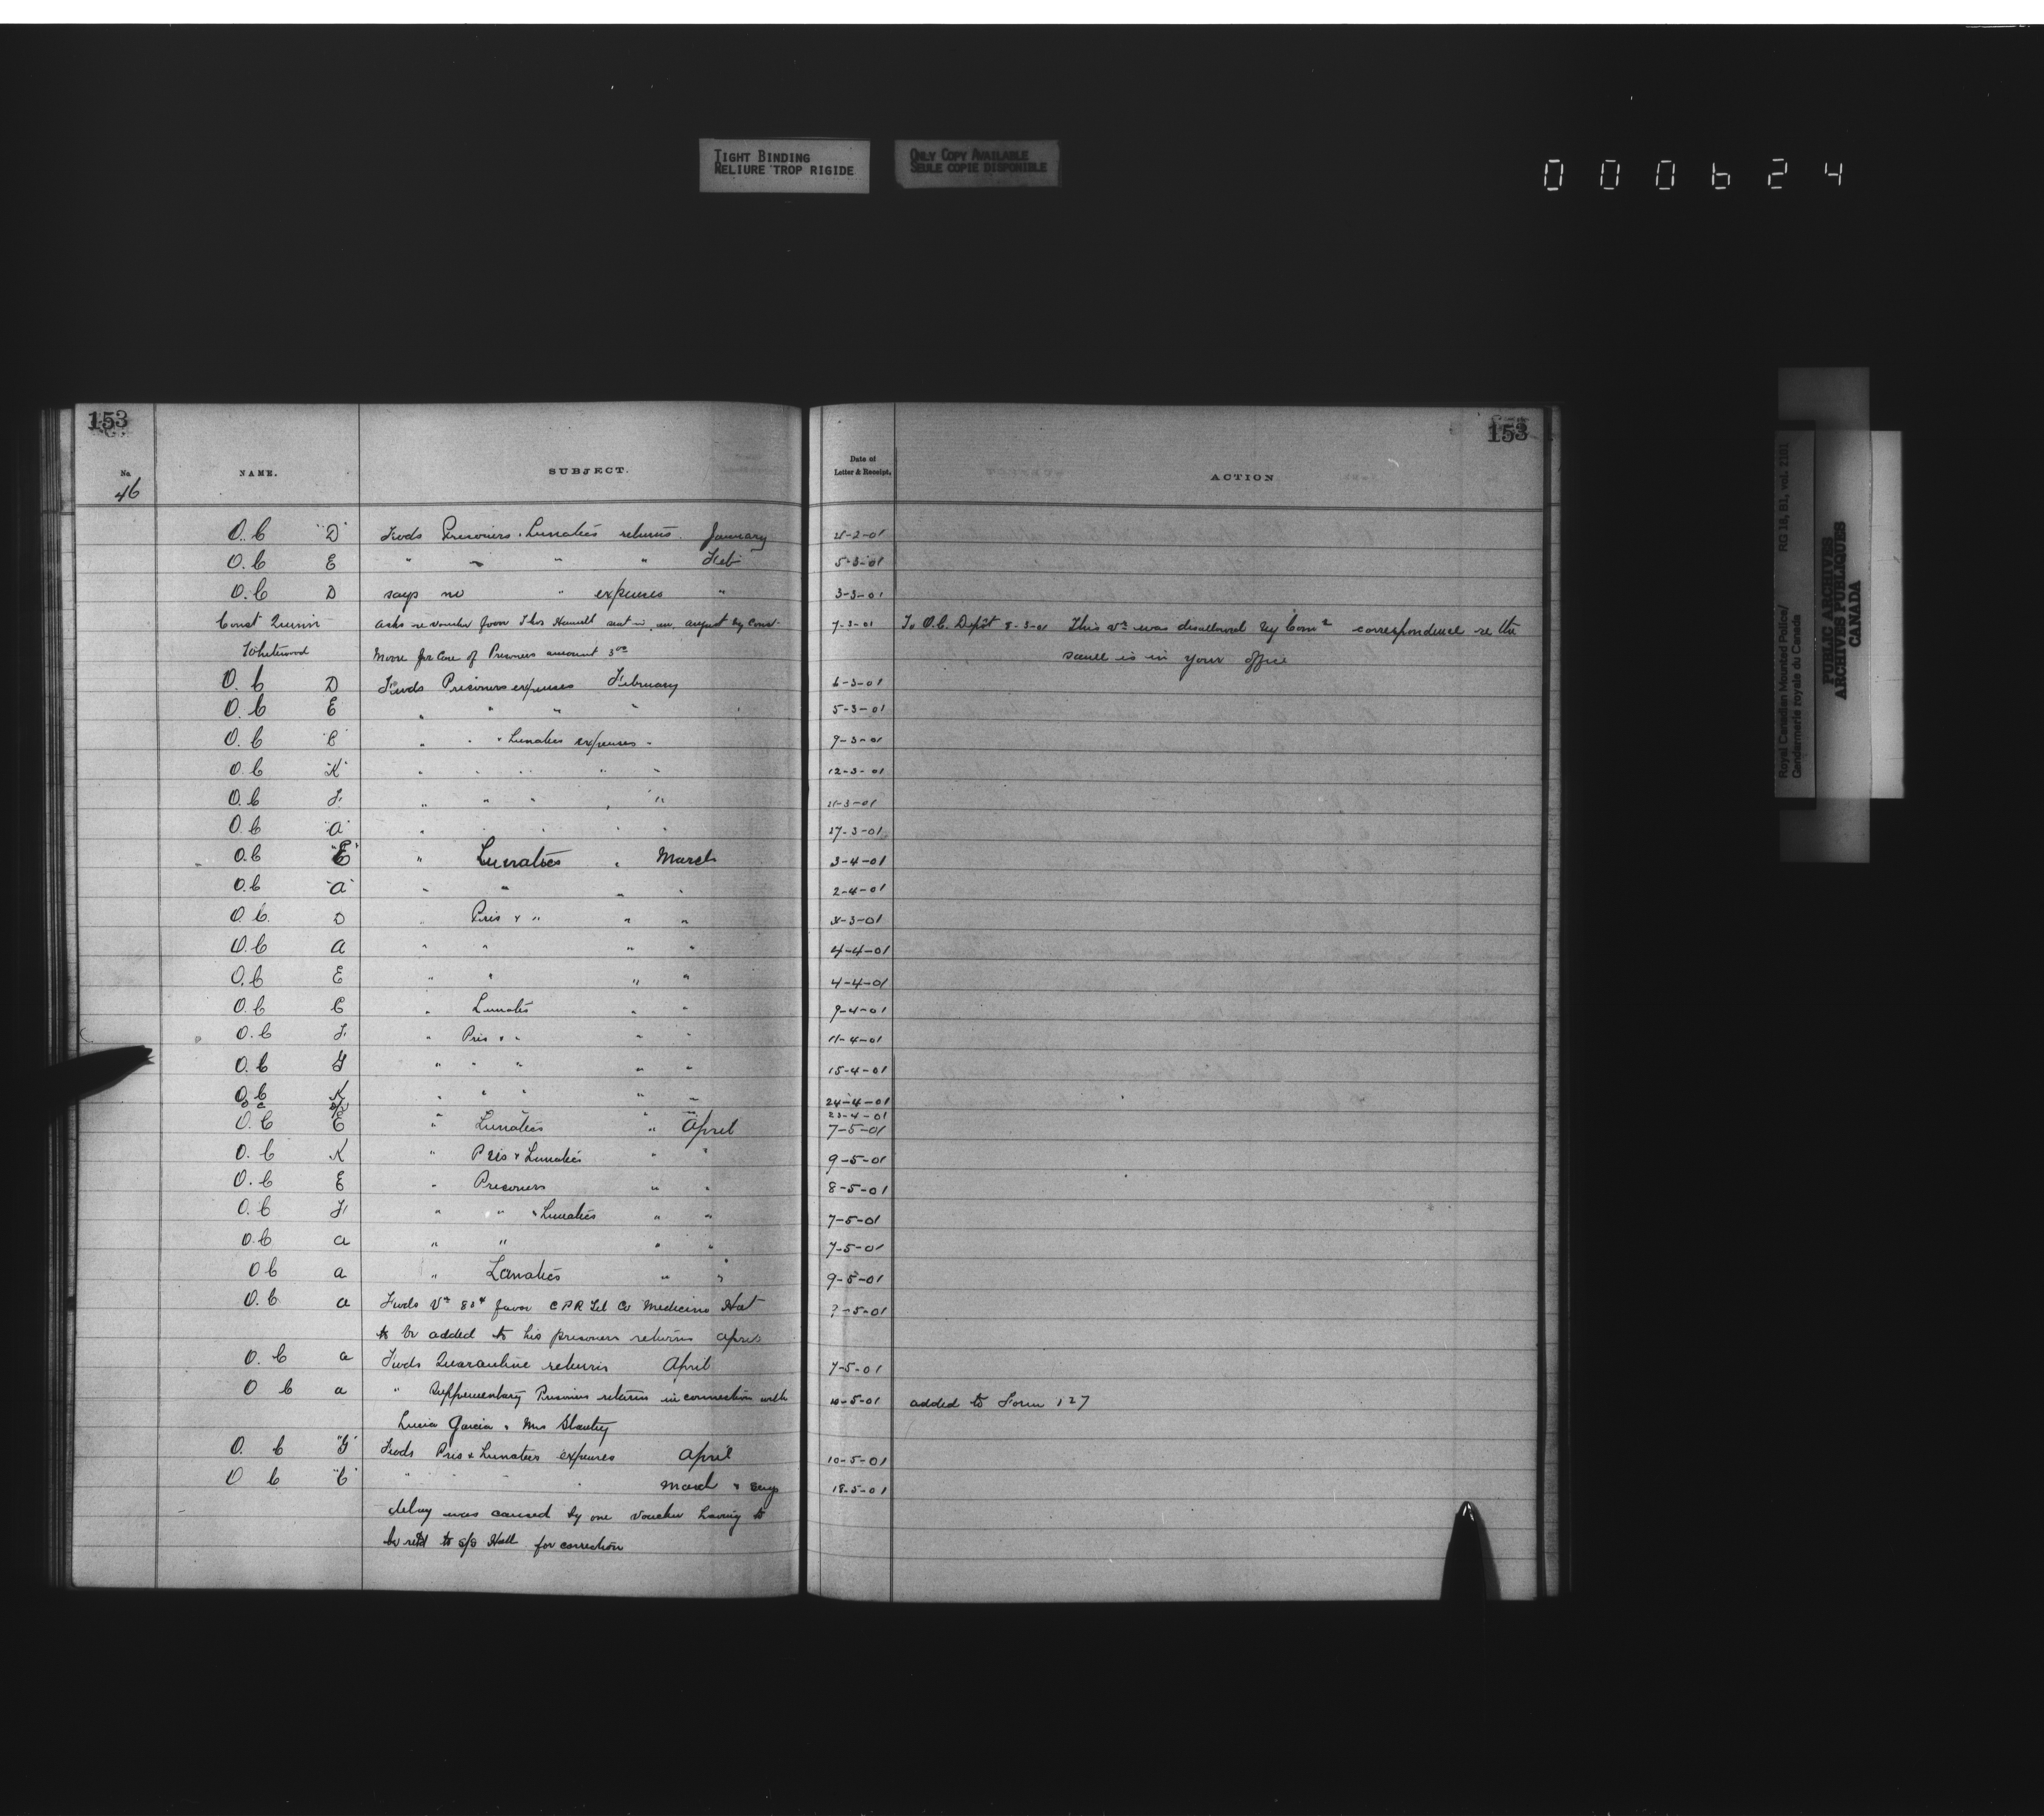 TIGHT BINDING
RELIURE TROP RIGIDE
ONLY COPY AVAILABLE
SEULE COPIE DISPONIBLE
000624
153
153
No.
NAME.
SUBJECT.
Date of
Letter & Receipt.
ACTION
46
O.C "D" Fwds Prisoners & Lunatics returns January 21-2-01
O.C E " " " " Feb 5-3-01
O.C D says no " expenses " 3-3-01
Const Quinn asks re voucher favor Thos sent in August by Const 7-3-01 To O.C. Depôt 8-3-01 This vr was disallowed by Comr correspondence re the
Whitewood Moore for Care of Prisoners amount 3.00 same is in your office
O.C D Fwds Prisoners expenses February 6-3-01
O.C E " " " " 5-3-01
O.C "C" " " & Lunatics expenses " 9-3-01
O.C "K" " " " " " 12-3-01
O.C F " " " " " 21-3-01
O.C "A" " " " " " 27-3-01
O.C "E" " Lunatics " March 3-4-01
O.C "A" " " " " 2-4-01
O.C. D " Pris & " " " -3-01
O.C A " " " " 4-4-01
O.C E " " " " 4-4-01
O.C C " Lunatic " " 9-4-01
O.C F " Pris & " " " 11-4-01
O.C G " " " " " 15-4-01
O.C K " " " " " 24-4-01
O C " " " 23-4-01
O.C E " Lunatics " April 7-5-01
O.C K " Pris & Lunatics " " 9-5-01
O.C E " Prisoners " " 8-5-01
O.C F " " & Lunatics " " 7-5-01
O.C a " " " " 7-5-01
O C a " Lunatics " " 9-5-01
O.C a Fwds Vr 80c favor C P R Tel Co Medicine Hat 9-5-01
to be added to his prisoners returns April
O.C a Fwds Quarantine returns April 7-5-01
O C a " Supplementary Prisoners returns in connection with 10-5-01 added to Form 127
Lucia Garcia & Mrs
O. C "G" Fwds Pris & Lunatics expenses April 10-5-01
O C "C" " " " " March & says 18-5-01
delay was caused by one voucher having to
be retd to S/S Hall for correction
Royal Canadian Mounted Police/
Gendarmerie royale du Canada
RG 18, B1, vol. 2101
PUBLIC ARCHIVES
ARCHIVES PUBLIQUES
CANADA